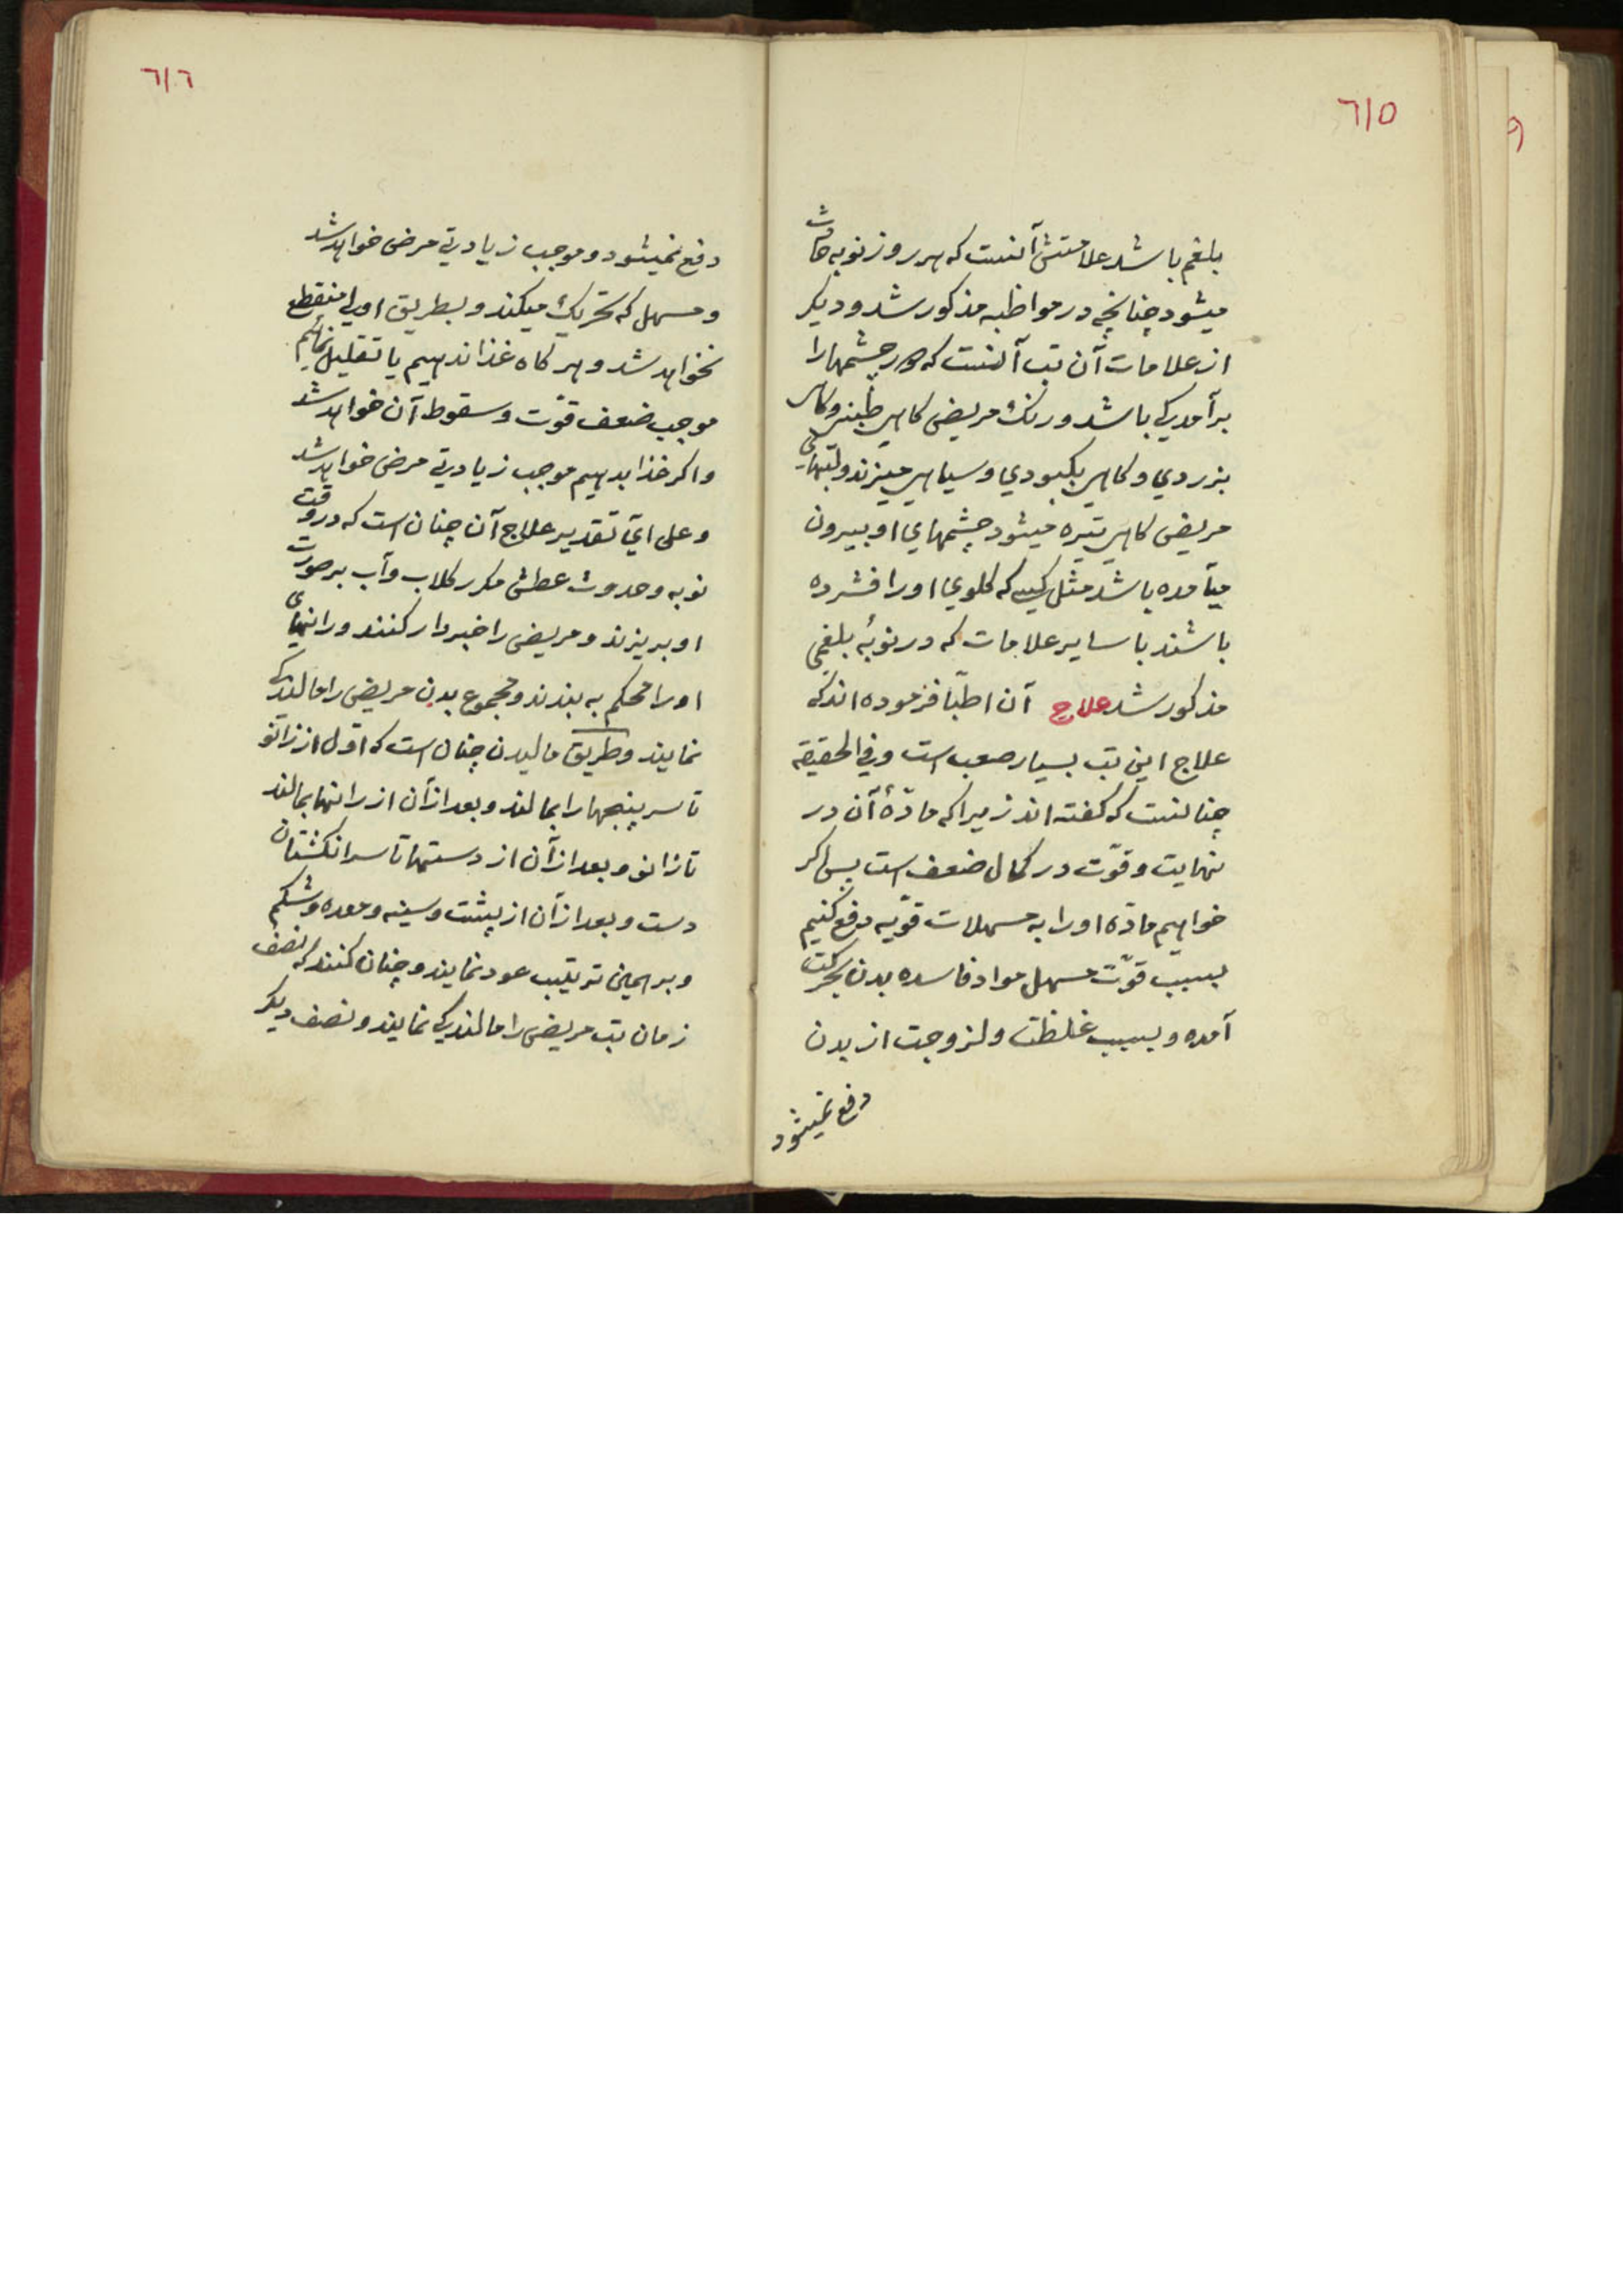 ٦١٥
بلغم باشد علامتش آنست که هر روز نوبه حادث
میشود چنانچه در مواظبه مذکور شد و دیکر
از علامات آن تب آنست که در چشمها را
برآمدکی باشد و رنک مریض کاهی بسبزی و کاهی
بزردی و کاهی بکبودی و سیاهی میزند و لبهای
مریض کاهی تیره میشود چشمهای او بیرون
میآمده باشد مثل کسی که کلوی او را فشرده
باشند با سایر علامات که در نوبهٔ بلغمی
مذکور شد علاج آن اطبّا فرموده اند که
علاج این تب بسیار صعب است و فی الحقیقه
چنانست که کفته اند زیرا که مادّهٔ آن در
نهایت و قوّت در کمال ضعف است پس اکر
خواهیم مادّه او را به مسهلات قوّیه دفع کنیم
بسبب قوّت مسهل مواد فاسده بدن بحرکت
آمده و بسبب غلظت و لزوجت از بدن
دفع نمیشود
٦١٦
دفع نمیشود و موجب زیادتی مرض خواهد شد
و مسهل که تحریک میکند و بطریق اولی منقطع
نخواهد شد و هر کاه غذا ندهیم یا تقلیل نمائیم
موجب ضعف قوّت و سقوط آن خواهد شد
و اکر غذا بدهیم موجب زیادتی مرض خواهد شد
و علی ایّ تقدیر علاج آن چنان است که در وقت
نوبه و حدوث عطش مکرر کلاب و آب بر صورت
او بریزند و مریض را خبردار کنند و رانهای
او را محکم به بندند و مجموع بدن مریض را مالندکی
نمایند و طریق مالیدن چنان است که اوّل از زانو
تا سر پنجها را بمالند و بعد از آن از رانها بمالند
تا زانو و بعد از آن از دستها تا سر انکشتان
دست و بعد از آن از پشت و سینه و معده و شکم
و بر همین ترتیب عود نمایند و چنان کنند که نصف
زمان تب مریض را مالندکی نمایند و نصف دیکر